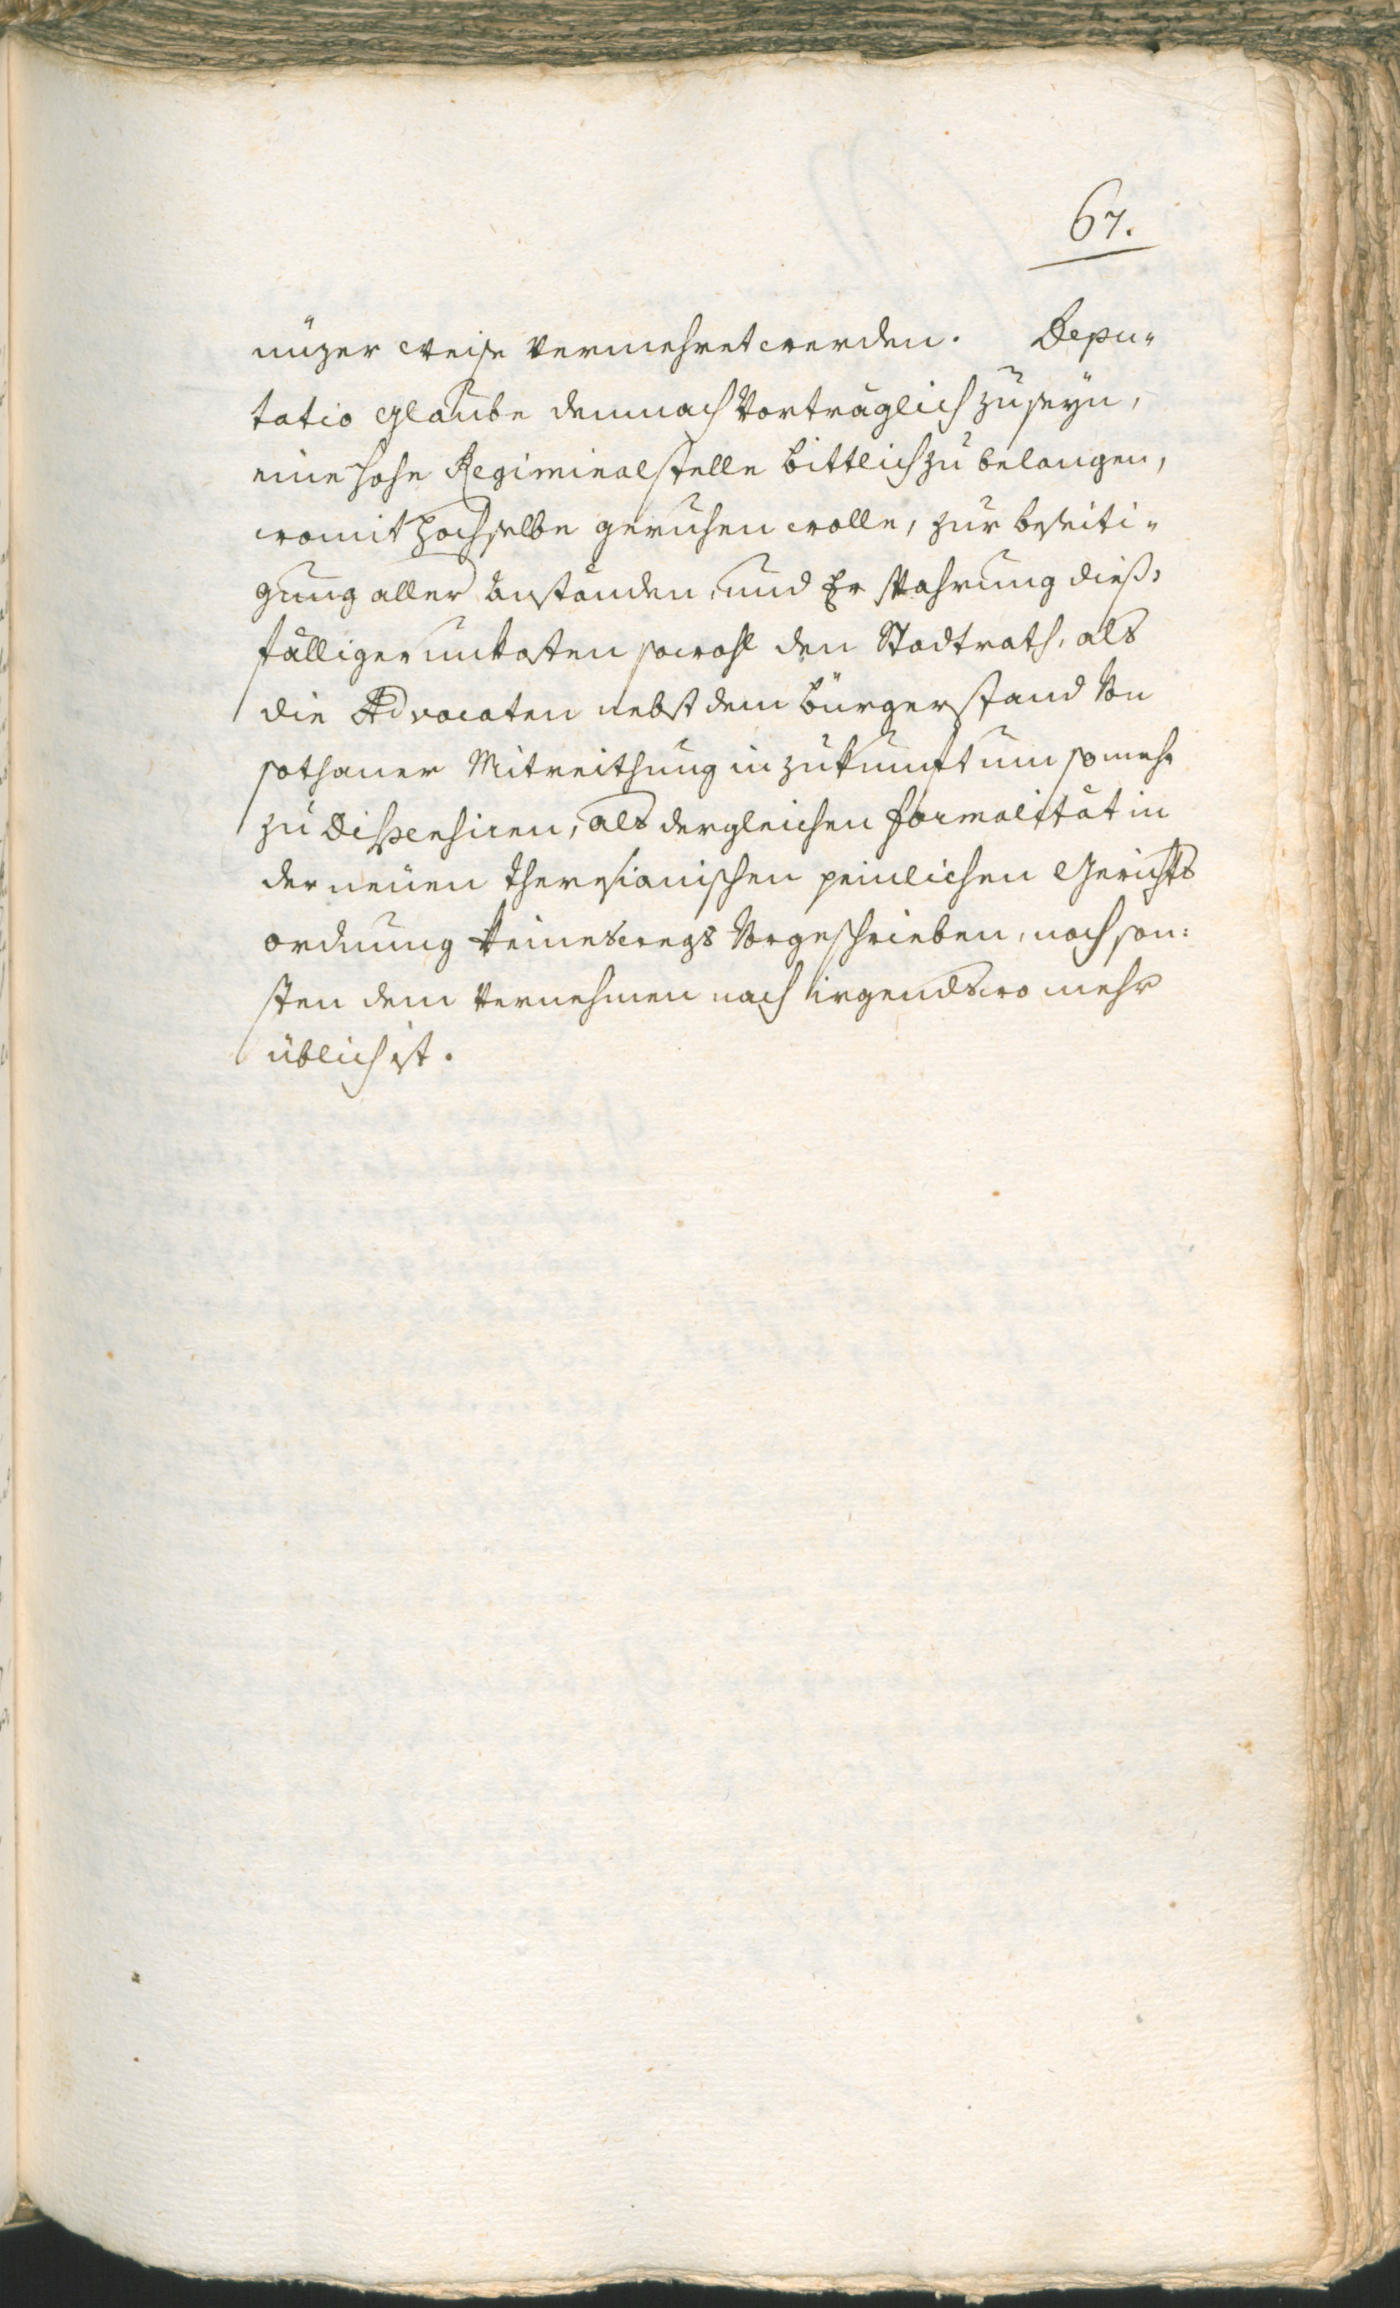 67.
nüzer Weise vermehret werden. Depu-
tatio Glaube demnach Vorträglich zu seyn,
eine hohe Regiminalstelle bittlich zu belangen,
womit hochselbe geruhen wolle, zur beseiti-
gung aller Anständen, und Er Spahrung dieß-
fälliger unkosten sowohl den Stadtrath, als
die Advocaten nebst dem bürgerstand Von
sothaner Mitreithung in zukunft um so mehr
zu Dispensiren, als dergleichen Formalität in
der neuen theresianischen peinlichen Gerichts
ordnung keineswegs Vorgeschrieben, noch son:
sten dem Vernehmen nach irgendswo mehr
üblich ist.